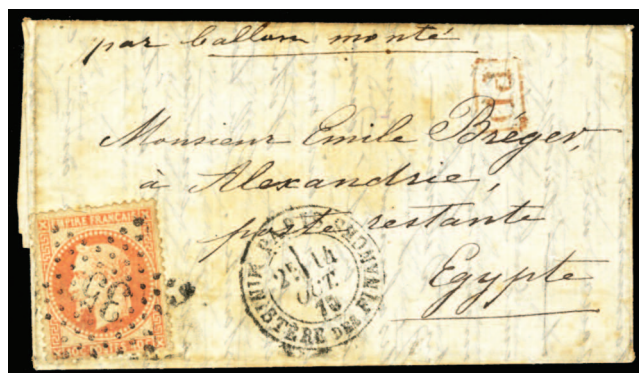 par ballon monté
PD
Monsieur Emile Bréger,
à Alexandrie,
poste restante
Egypte
PIRE FRANÇAI
35
PARIS
MINISTERE DES FINANCES
2E 14
OCT.